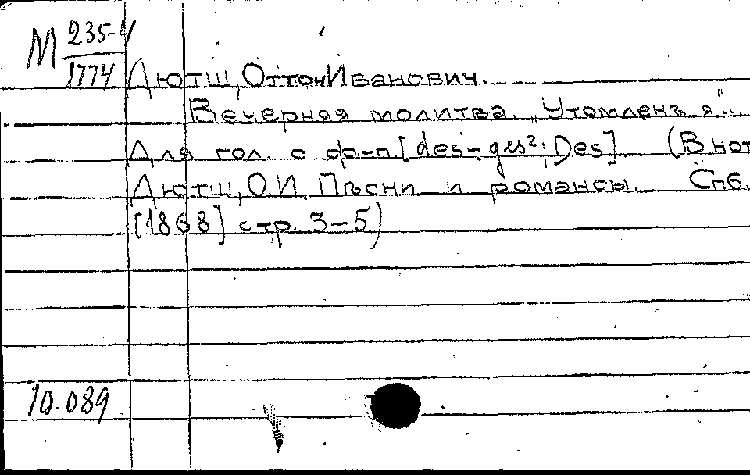 М 235-4
1774
Дютш, Оттон Иванович.
Вечерняя молитва. „Утомленъ я"...
Для гол. с ф-п [des-ges²; Des] (В нот
Дютш, О.И. Пѣсни и романсы. Спб.
[1868] стр. 3-5)
10.089